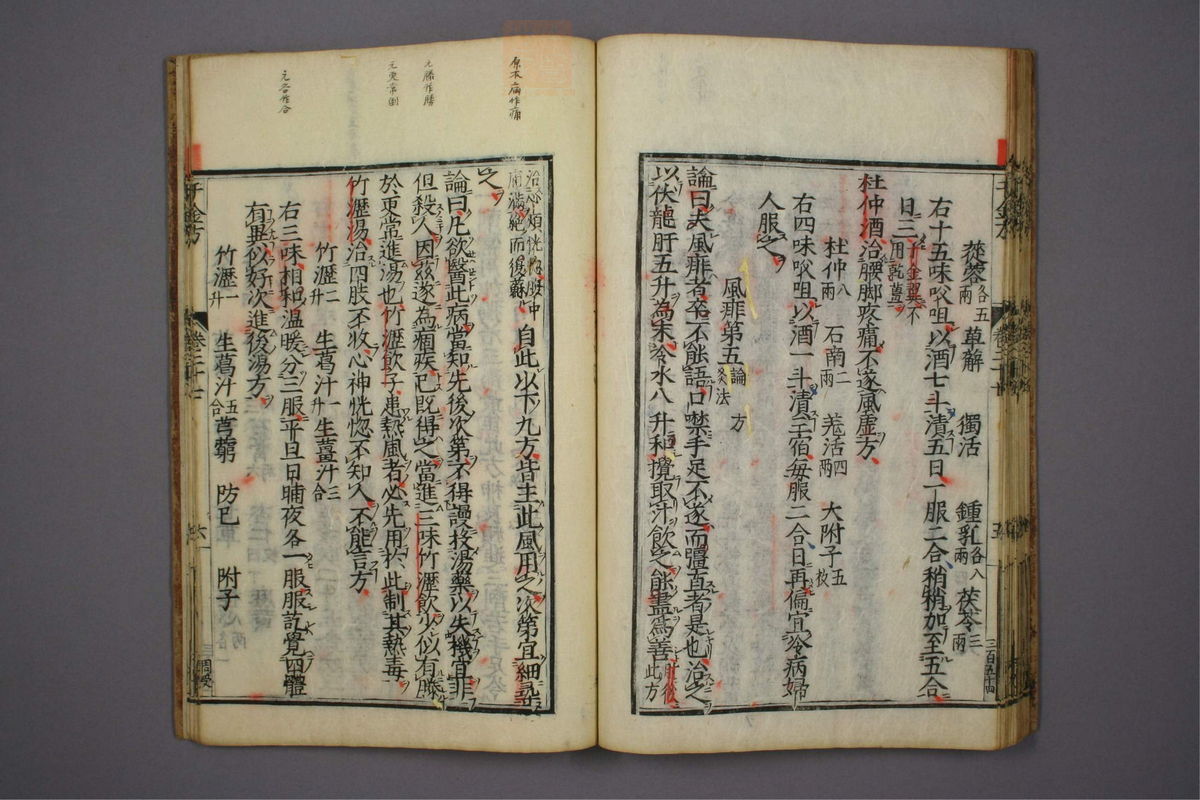 蓯蓉各五兩 萆解 獨活 鍾乳各八兩 茯苓三兩
右十五味㕮咀以酒七斗漬五日一服二合稍稍加至五合
日三千金翼不用乾薑
杜仲酒治腰脚疼痛不遂風虛方
杜仲八兩 石南二兩 羗活四兩 大附子五枚
右四味㕮咀以酒一斗漬三宿每服二合日再偏宜冷病婦
人服之
風痱第五論 方 灸法
論曰夫風痱者卒不能語口噤手足不遂而彊直者是也治之
以伏龍肝五升為末冷水八升和攪取汁飲之能盡為善肘後此方
治心煩恍惚腹中
痛滿絶而復蘇
自此以下九方皆主此風用之次第宜細尋
之
論曰凡欲醫此病當知先後次第不得謾投湯藥以失機宜非
但殺人因茲遂為痼疾已既得之當進三味竹瀝飲少似有勝
於更當進湯也竹瀝飲子患熱風者必先用此制其熱毒
竹瀝湯治四肢不收心神恍惚不知人不能言方
竹瀝二升 生葛汁一升 生薑汁三合
右三味相和温暖分三服平旦日晡夜各一服服訖覺四體
有異似好次進後湯方
竹瀝一升 生葛汁五合 芎藭 防已 附子
千金方
卷二十七
六
三周受
三百五十四
原本痛作痛
元勝作勝
元更常倒
元各作合